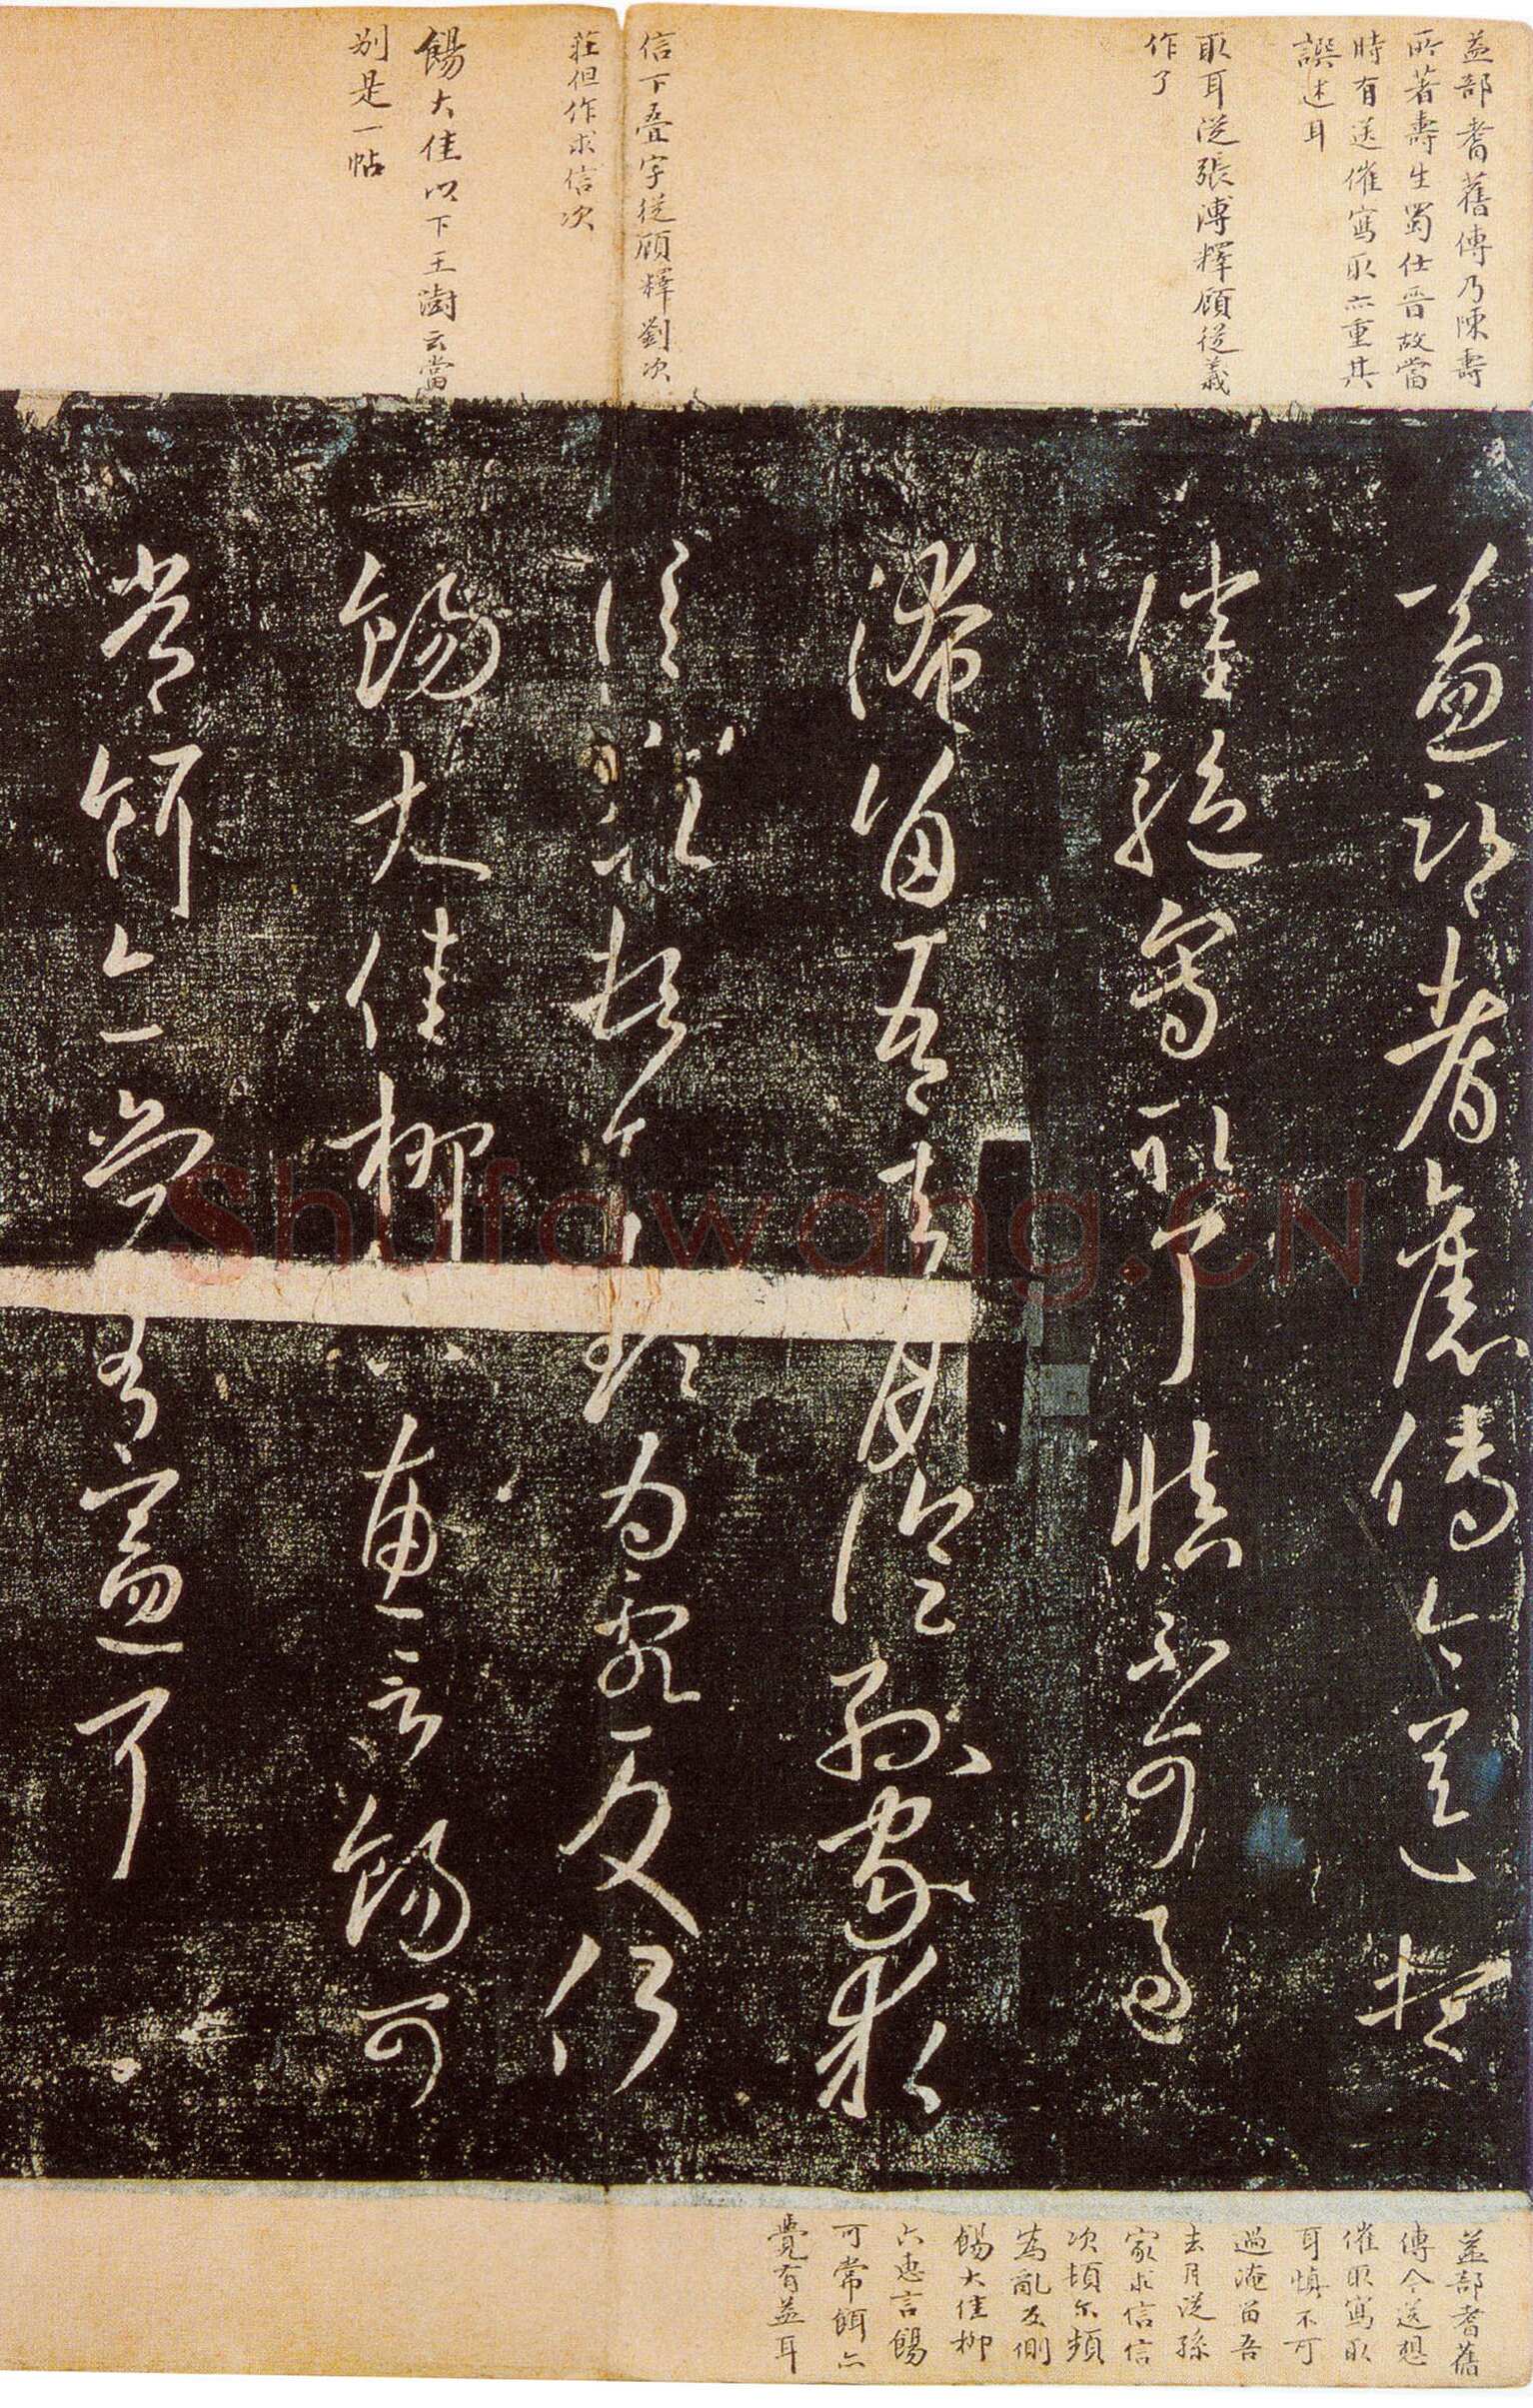 益部耆舊傳乃陳壽
所著壽生蜀仕晉故當
時有送催寫取亦重其
譔述耳
取耳從張溥釋顧從義
作了
信下叠字從顧釋劉次
莊但作求信次
餳大佳以下王澍云當
別是一帖
益部耆舊傳今送想
催驅寫取耳慎不可過
淹留吾去月從孫家求
信信次頓尒頻為亂反側
餳大佳柳六惠言餳可
常餌亦覺有益耳
益部耆舊
傳今送想
催取寫取
耳慎不可
過淹留吾
去月從孫
家求信信
次頓尒頻
為亂反側
餳大佳柳
六惠言餳
可常餌亦
覺有益耳
Shufawang.CN